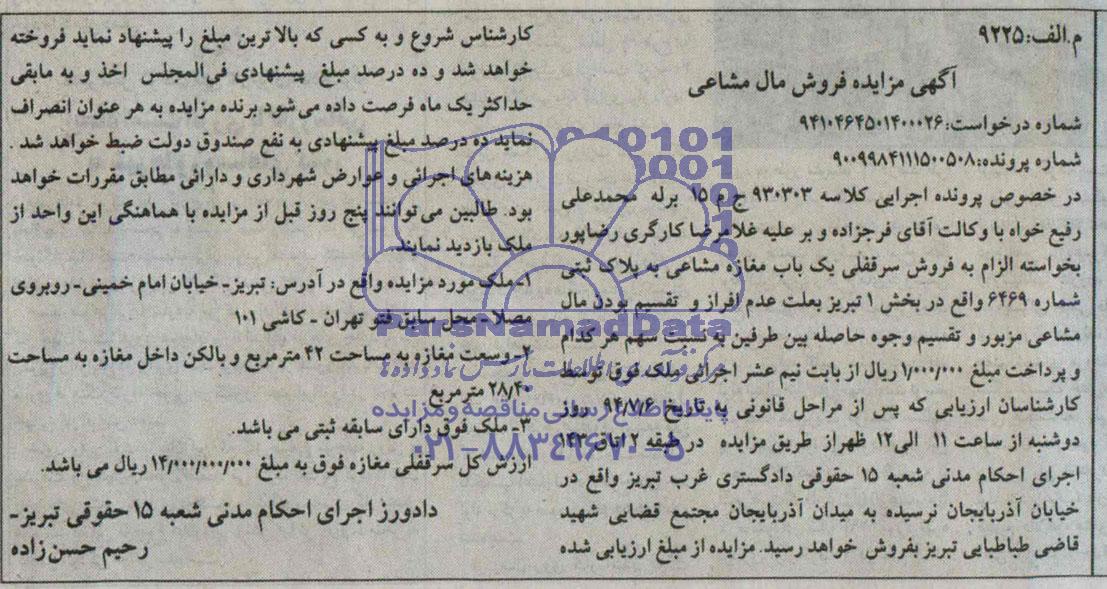 م.الف:۹۲۲۵
آگهی مزایده فروش مال مشاعی
شماره درخواست: ۹۴۱۰۴۶۴۵۰۱۴۰۰۰۲۶
شماره پرونده: ۹۰۰۹۹۸۴۱۱۱۵۰۰۵۰۸
در خصوص پرونده اجرایی کلاسه ۹۳۰۳۰۳ ج م ۱۵ برله محمدعلی
رفیع خواه با وکالت آقای فرجزاده و بر علیه غلامرضا کارگری رضاپور
بخواسته الزام به فروش سرقفلی یک باب مغازه مشاعی به پلاک ثبتی
شماره ۶۴۶۹ واقع در بخش ۱ تبریز بعلت عدم افراز و تقسیم بودن مال
مشاعی مزبور و تقسیم وجوه حاصله بین طرفین به نسبت سهم هر کدام
و پرداخت مبلغ ۱/۰۰۰/۰۰۰ ریال از بابت نیم عشر اجرائی ملک فوق توسط
کارشناسان ارزیابی که پس از مراحل قانونی به تاریخ ۹۴/۷/۶ روز
دوشنبه از ساعت ۱۱ الی ۱۲ ظهر از طریق مزایده در طبقه ۲ اتاق ۱۴۳
اجرای احکام مدنی شعبه ۱۵ حقوقی دادگستری غرب تبریز واقع در
خیابان آذربایجان نرسیده به میدان آذربایجان مجتمع قضایی شهید
قاضی طباطبایی تبریز بفروش خواهد رسید. مزایده از مبلغ ارزیابی شده
کارشناس شروع و به کسی که بالاترین مبلغ را پیشنهاد نماید فروخته
خواهد شد و ده درصد مبلغ پیشنهادی فی المجلس اخذ و به مابقی
حداکثر یک ماه فرصت داده می شود برنده مزایده به هر عنوان انصراف
نماید ده درصد مبلغ پیشنهادی به نفع صندوق دولت ضبط خواهد شد .
هزینه های اجرائی و عوارض شهرداری و دارائی مطابق مقررات خواهد
بود. طالبین می توانند پنج روز قبل از مزایده با هماهنگی این واحد از
ملک بازدید نمایند.
۱- ملک مورد مزایده واقع در آدرس: تبریز- خیابان امام خمینی- روبروی
مصلا - محل سابق فتو تهران - کاشی ۱۰۱
۲- وسعت مغازه به مساحت ۴۲ مترمربع و بالکن داخل مغازه به مساحت
۲۸/۴۰ مترمربع
۳- ملک فوق دارای سابقه ثبتی می باشد.
ارزش کل سرقفلی مغازه فوق به مبلغ ۱۴/۰۰۰/۰۰۰/۰۰۰ ریال می باشد.
دادورز اجرای احکام مدنی شعبه ۱۵ حقوقی تبریز-
رحیم حسن زاده
ParsNamadData
پایگاه اطلاع رسانی مناقصه و مزایده
۰۲۱-۸۸۳۴۹۶۷۰-۵